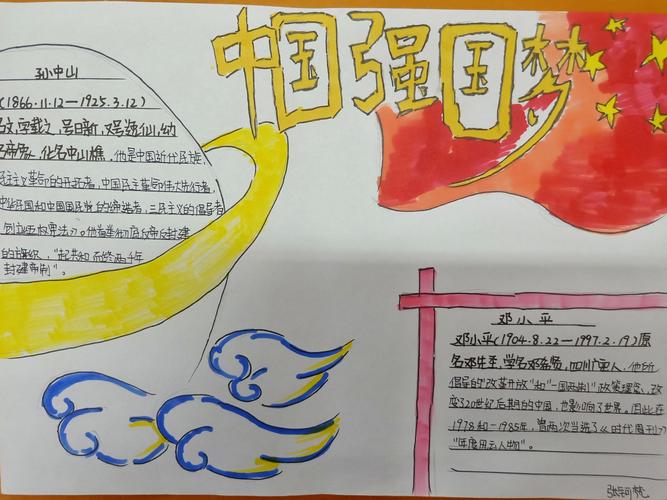 中国强国梦
孙中山
(1866.11.12—1925.3.12)
名文,字载之,号日新,又号逸仙,幼
名帝象,化名中山樵,他是中国近代民族
民主主义革命的开拓者,中国民主革命伟大先行者,
中华民国和中国国民党的缔造者,三民主义的倡导者
创立五权宪法
的旗帜,"起共和而终两千年
封建帝制"。
邓小平
邓小平(1904.8.22—1997.2.19)原
名邓先圣,学名邓希贤,四川广安人,他所
倡导的"改革开放"和"一国两制"政策理念,改
变了20世纪后期的中国,也影响了世界。因此在
1978和一1985年,曾两次当选了《时代周刊》
"年度风云人物"。